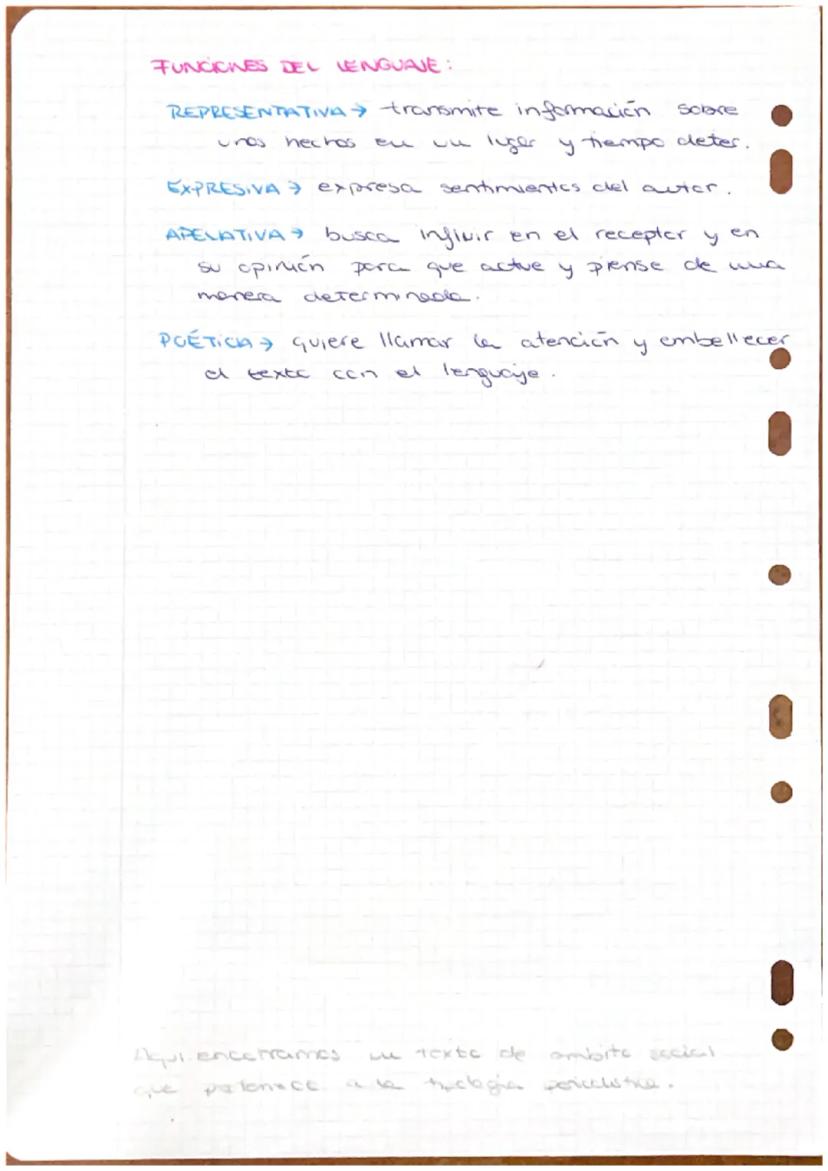 FUNCIONES DEL LENGUAJE:
REPRESENTATIVA → transmite información sobre
unos hechos en un lugar y tiempo deter.
EXPRESIVA → expresa sentimientos del autor.
APELATIVA → busca influir en el receptor y en
su opinión para que actue y piense de una
manera determinada.
POÉTICA → quiere llamar la atención y embellecer
el texto con el lenguaje.
Aquí encontramos un texto de ambito social
que pertenece a la tipologia periodistica.